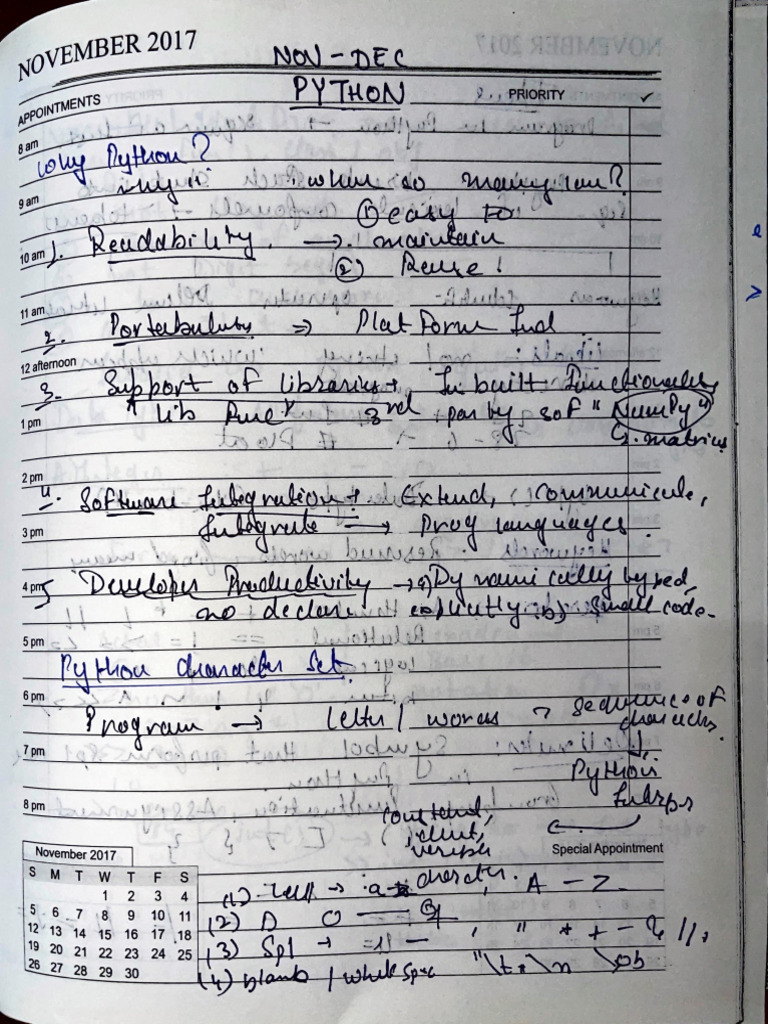 NOVEMBER 2017
NOV - DEC
PYTHON
APPOINTMENTS
PRIORITY
✓
8 am
Why Python?
9 am
why when so many lan?
① easy to
10 am
1. Readability → maintain
② Reuse!
11 am
2. Portability ⇒ Plat Form Ind
12 afternoon
3. Support of libraries → In built Functionality
1 pm
* lib Func * 3rd party sof "NumPy"
matrix
2 pm
4. Software Integration → Extend, Communicate,
3 pm
Integrate → Prog languages.
4 pm
5 Developer Productivity → a) Dynamically typed,
no declare explicitly b) Small code.
5 pm
Python character Set.
6 pm
Program → letter / words → sequence of
characters.
7 pm
Python
8 pm
Special Appointment
November 2017
S M T W T F S
1 2 3 4
5 6 7 8 9 10 11
12 13 14 15 16 17 18
19 20 21 22 23 24 25
26 27 28 29 30
(1) → a - z character, A - Z
(2) D 0 - 9
(3) Spl →
(4) blank / white spac "\t, \n \b